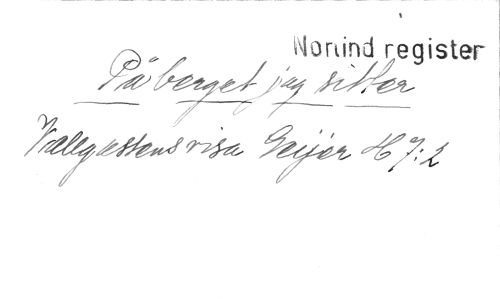 Norlind register
På berget jag sitter
Vallgossens visa Geijer H 7:2